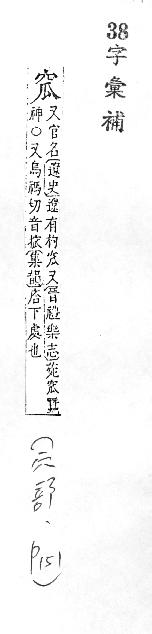 38字彙補
窊
又官名遼史遼有杓窊又禮樂志窊
神○又烏禡切音集韻窊下處也
(穴部、
P151)